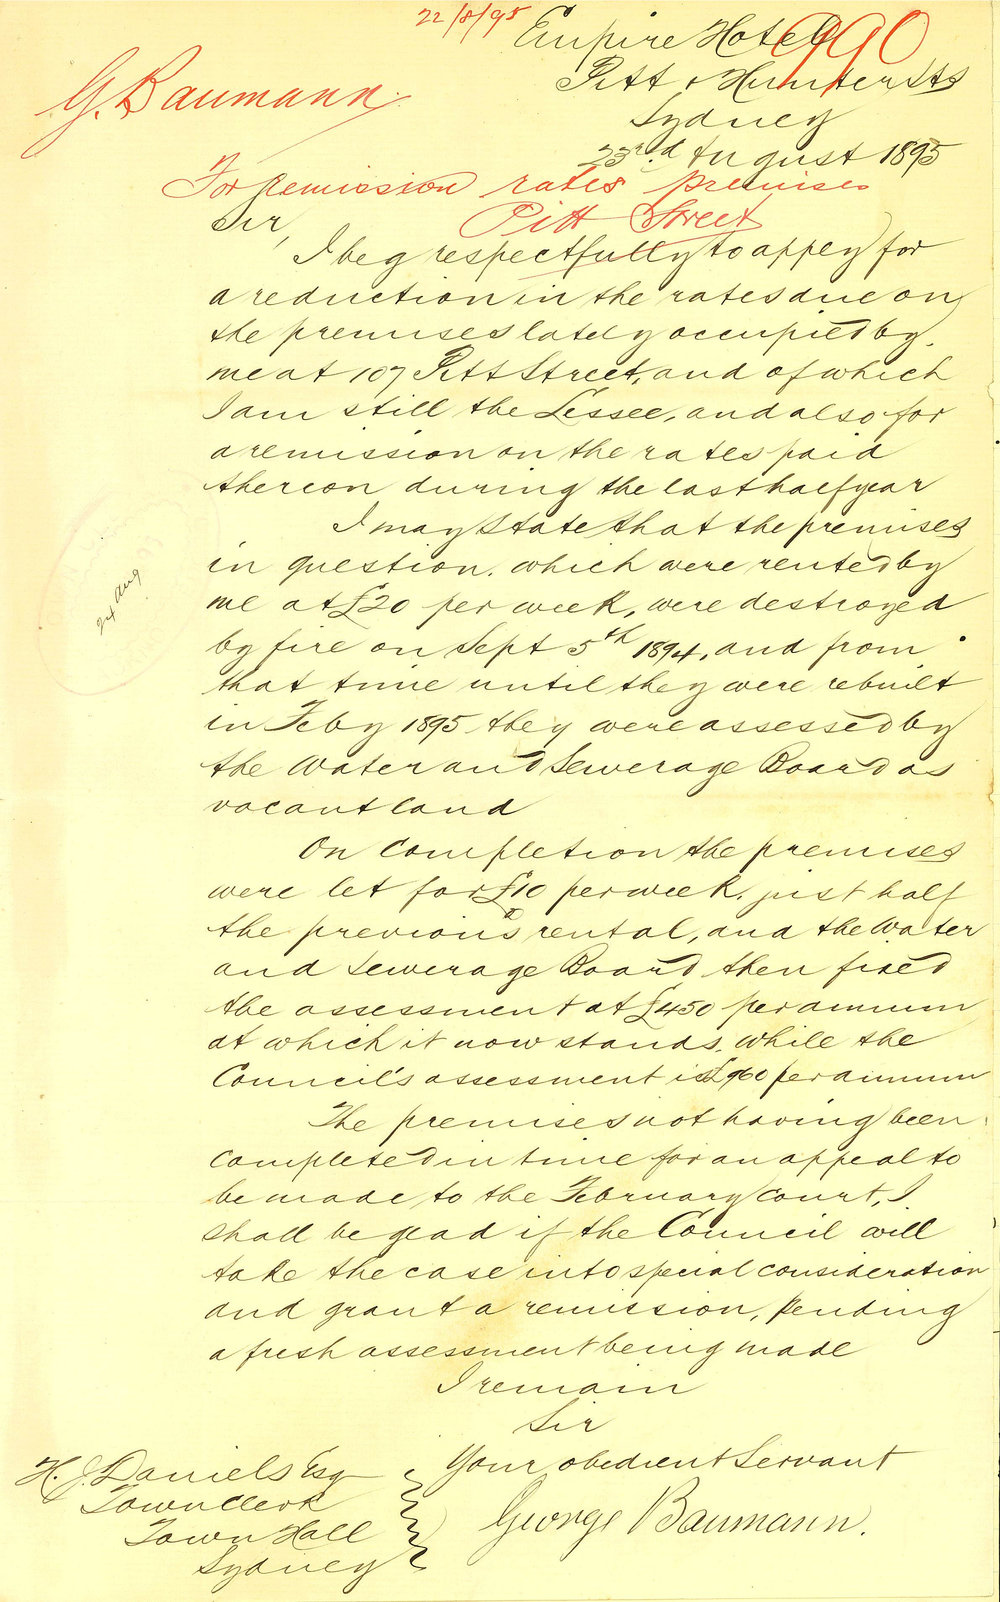 22/8/95
Empire Hotel
990
Pitt & Hunter Sts
G. Baumann.
Sydney
23rd August 1895
For remission rates premises
Pitt Street
Sir,
I beg respectfully to apply for
a reduction in the rates due on
the premises lately occupied by
me at 107 Pitt Street, and of which
I am still the Lessee, and also for
a remission on the rates paid
thereon during the last half year
I may state that the premises
in question, which were rented by
me at £20 per week, were destroyed
by fire on Sept 5th 1894, and from
that time until they were rebuilt
in Feby 1895 they were assessed by
the Water and Sewerage Board as
vacant land
24 Aug
On completion the premises
were let for £10 per week, just half
the previous rental, and the Water
and Sewerage Board then fixed
the assessment at £450 per annum
at which it now stands, while the
Council's assessment is £960 per annum
The premises not having been
completed in time for an appeal to
be made to the February Court, I
shall be glad if the Council will
take the case into special consideration
and grant a remission, pending
a fresh assessment being made
I remain
Sir
Your obedient Servant
George Baumann.
H. J. Daniels Esq
Town Clerk
Town Hall
Sydney